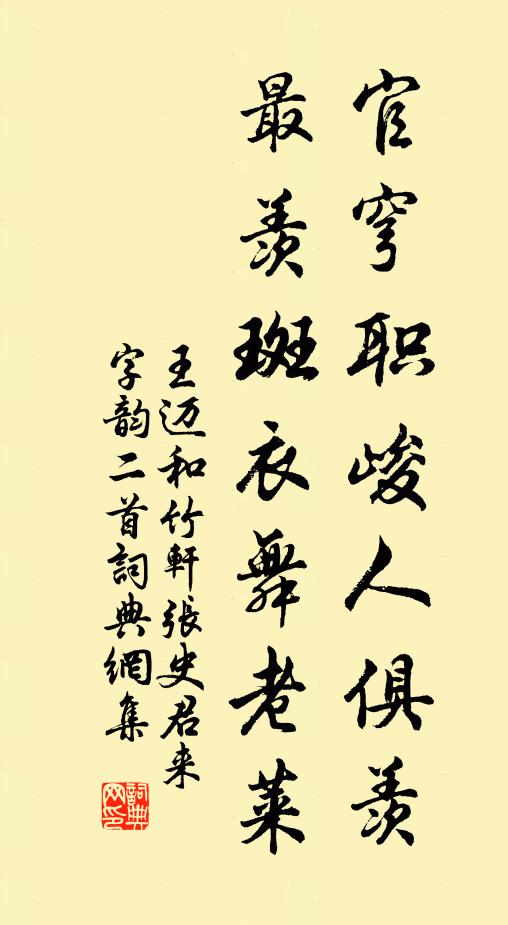 官穹职峻人俱羡
最羡斑衣舞老莱
王迈和竹軒張史君来
字韵二首詞典網集
詞典网印